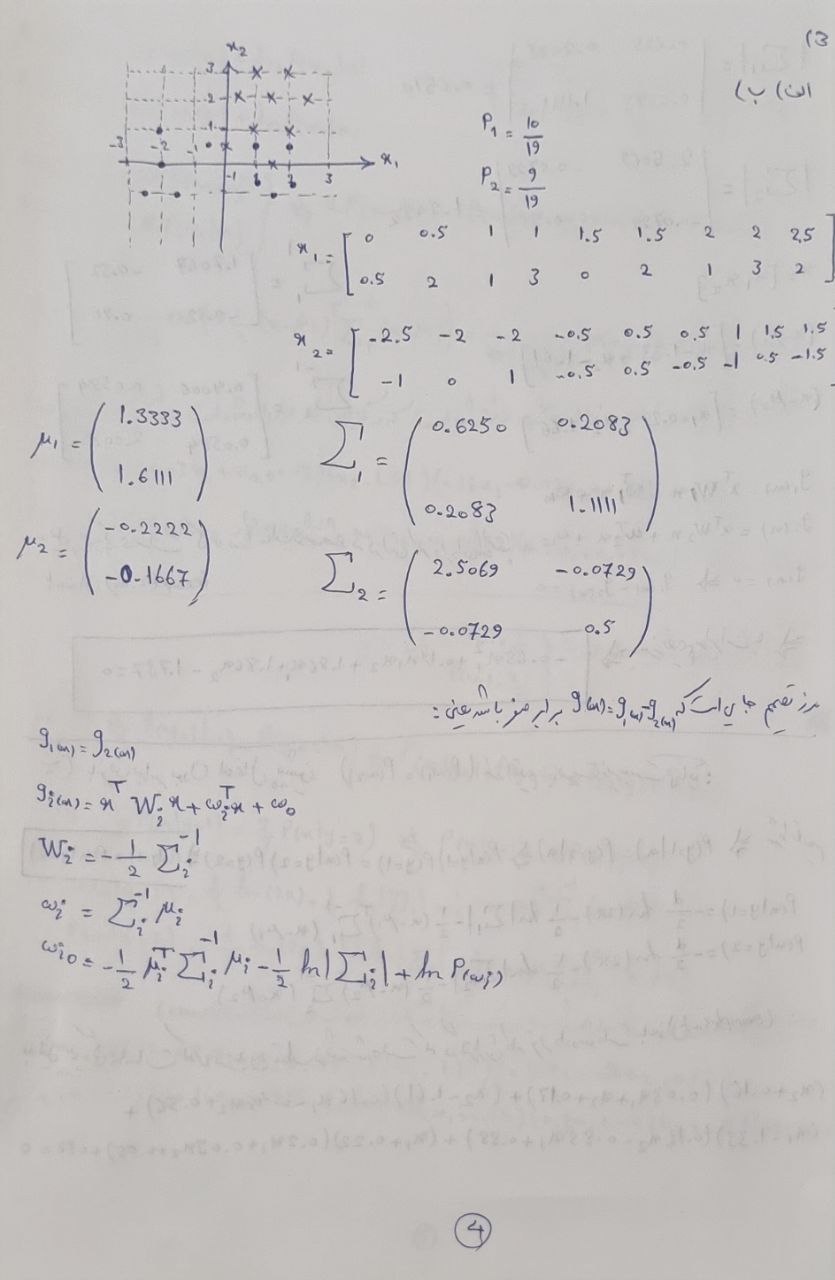 (3
الف) ب)
x₂
3
2
1
-3 -2 -1
x₁
-1 1 2 3
P₁ = 10/19
P₂ = 9/19
x₁ = [0 0.5 1 1 1.5 1.5 2 2 2.5
0.5 2 1 3 0 2 1 3 2]
x₂ = [-2.5 -2 -2 -0.5 0.5 0.5 1 1.5 1.5
-1 0 1 -0.5 0.5 -0.5 -1 0.5 -1.5
μ₁ = (1.3333
1.6111)
Σ₁ = (0.6250 0.2083
0.2083 1.1111)
μ₂ = (-0.2222
-0.1667)
Σ₂ = (2.5069 -0.0729
-0.0729 0.5)
مرز تصمیم جایی است که g(x)=g₁(x)-g₂(x) برابر صفر باشد یعنی:
g₁(x) = g₂(x)
gᵢ(x) = xᵀ Wᵢ x + ωᵢᵀx + ω₀
Wᵢ = -1/2 Σᵢ⁻¹
ωᵢ = Σᵢ⁻¹ μᵢ
ωᵢ₀ = -1/2 μᵢᵀ Σᵢ⁻¹ μᵢ - 1/2 ln|Σᵢ| + ln P(ωᵢ)
4